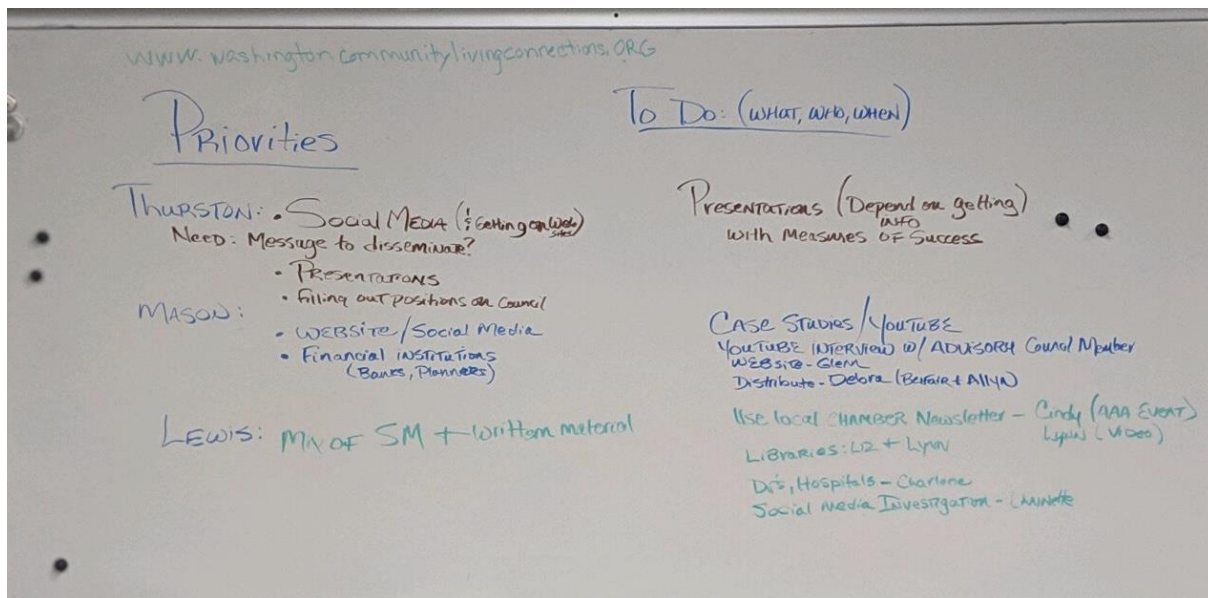 www.washingtoncommunitylivingconnections.ORG
Priorities
THURSTON: • Social MEDIA (& Getting on Web sites)
Need: Message to disseminate?
• PResentations
• Filling out positions on Council
MASON:
• WEBSITE/Social Media
• Financial INSTITUTIONS
(Banks, Planners)
LEWIS: Mix OF SM + written material
To Do: (WHAT, WHO, WHEN)
Presentations (Depend on getting)
INFO
with Measures OF Success
CASE STUDIES/YOUTUBE
YOUTUBE INTERVIEW W/ ADVISORY Council Member
WEBSITE - Glenn
Distribute - Debra (Belfair + Allyn)
Use local CHAMBER Newsletter - Cindy (AAA EVENT)
Lynn (VIDEO)
LiBRARIES: Liz + Lynn
Dr's, Hospitals - Charlene
Social Media Investigation -